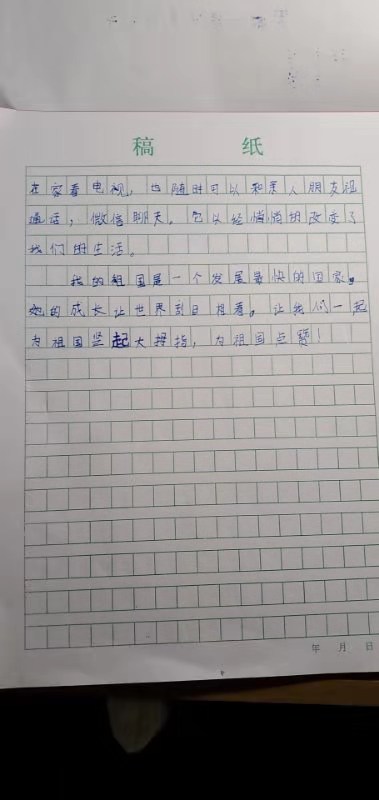 稿 纸
在家看电视，也随时可以和亲人朋友语
通话，微信聊天。它以经悄悄地改变了
我们的生活。
我的祖国是一个发展最快的国家。
她的成长让世界刮目相看。让我们一起
为祖国竖起大拇指，为祖国点赞！
年 月 日